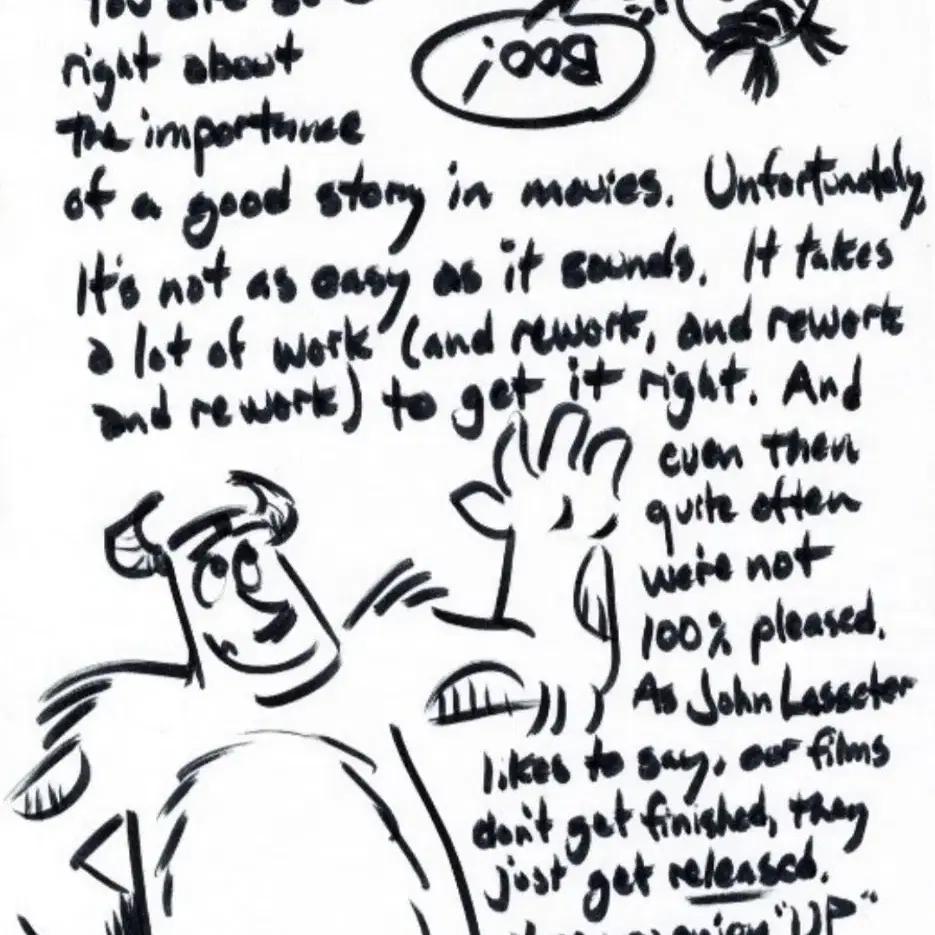 You are so
right about
Boo!
the importance
of a good story in movies. Unfortunately,
It's not as easy as it sounds. It takes
a lot of work (and rework, and rework
and rework) to get it right. And
even then
quite often
we're not
100% pleased.
As John Lasseter
likes to say, our films
don't get finished, they
just get released.
"UP"